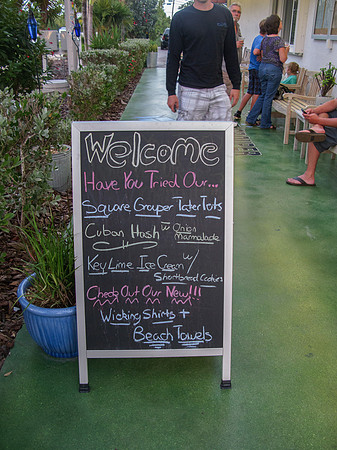 Welcome
Have You Tried Our...
Square Grouper Tater Tots
Cuban Hash w/ Onion Marmalade
Key Lime Ice Cream w/
Shortbread Cookies
Check Out Our New!!!
Wicking Shirts +
Beach Towels